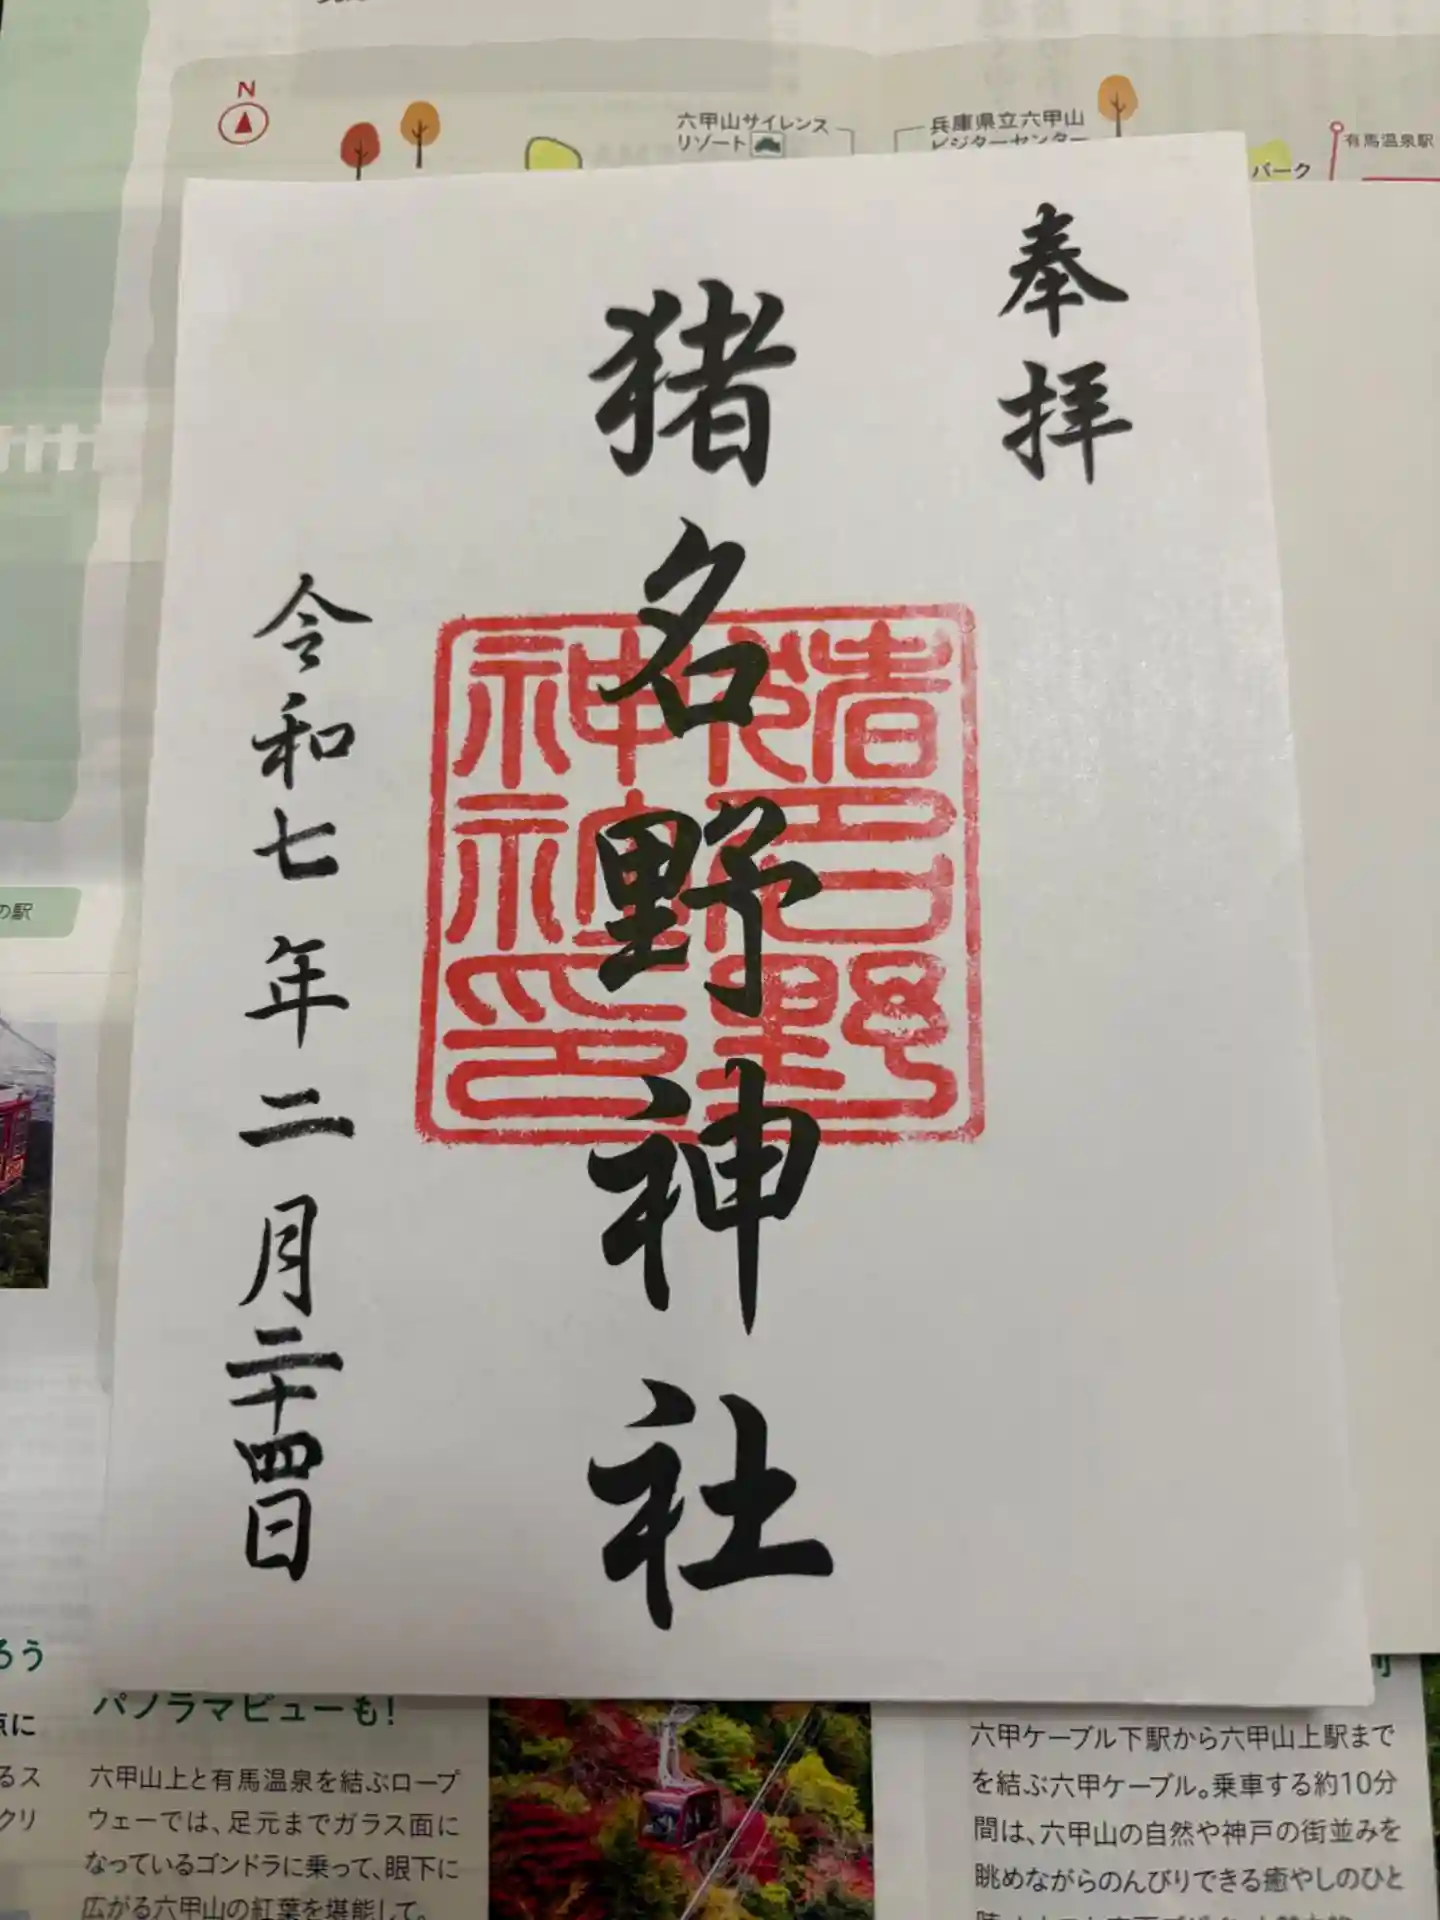 N
六甲山サイレンス
リゾート
兵庫県立六甲山
ビジターセンター
有馬温泉駅
パーク
奉拝
猪名野神社
令和七年二月二十四日
猪名野
神社印
の駅
ろう
点に
るス
クリ
パノラマビューも!
六甲山上と有馬温泉を結ぶロープ
ウェーでは、足元までガラス面に
なっているゴンドラに乗って、眼下に
広がる六甲山の紅葉を堪能して。
六甲ケーブル下駅から六甲山上駅まで
を結ぶ六甲ケーブル。乗車する約10分
間は、六甲山の自然や神戸の街並みを
眺めながらのんびりできる癒やしのひと